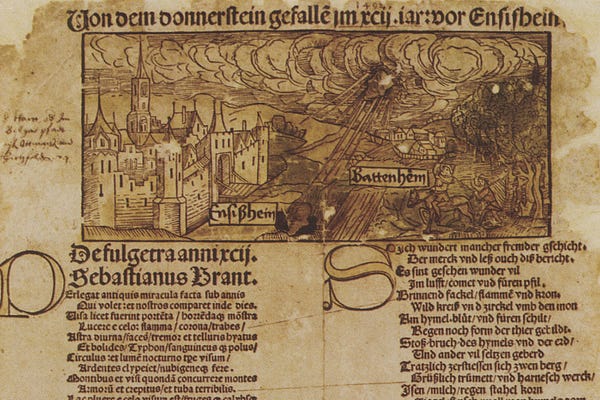 Von dem donnerstein gefallē jm xcij. iar: vor Ensisheim
1492
Battenheim
Ensißheim
De fulgetra anni xcij.
Sebastianus Brant.
Perlegat antiquis miracula facta sub annis
Qui volet: et nostros comparet inde dies.
Visa licet fuerint portēta / horrēdaqȝ mōstra
Lucere e celo: flamma / corona / trabes /
Astra diurna / faces / tremor et telluris hyatus
Et bolides / Typhon / sanguineus qȝ polus /
Circulus: et lumē nocturno tpe visum /
Ardentes clypei / et nubigeneqȝ fere.
Montibus et visi quondā concurrere montes
Armorū et crepitus / et tuba terribilis.
Sich wundert mancher fremder gschicht.
Der merck vnd leß ouch diß bericht.
Es sint gesehen wunder vil
Im lufft / comet vnd füren pfil.
Brinnend fackel / flammē vnd kron.
Wild kreiß vnd zirckel vmb den mon
Am hymel. blůt / vnd füren schilt /
Regen noch form der thier gebildt.
Stoß. bruch des hymels vnd der erd /
Vnd ander vil seltzen geberd
Tratzlich zerstiessen sich zwen berg /
Grüßlich trümett / vnd harnesch werck /
Isen / milch / regen stahel korn